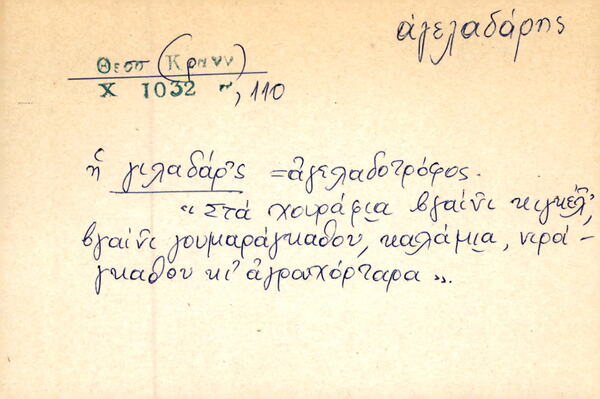 ἀγελαδάρης
Θεσσ (Κρανν)
Χ 1032, 110
ἡ γιλαδάρ'ς = ἀγελαδοτρόφος.
"Στά χουράφια βγαίν'ι κιγκέλ',
βγαίν'ι γουμαράγκαθου, καλάμια, νιρά-
γκαθου κι' ἀγρουχόρταρα".